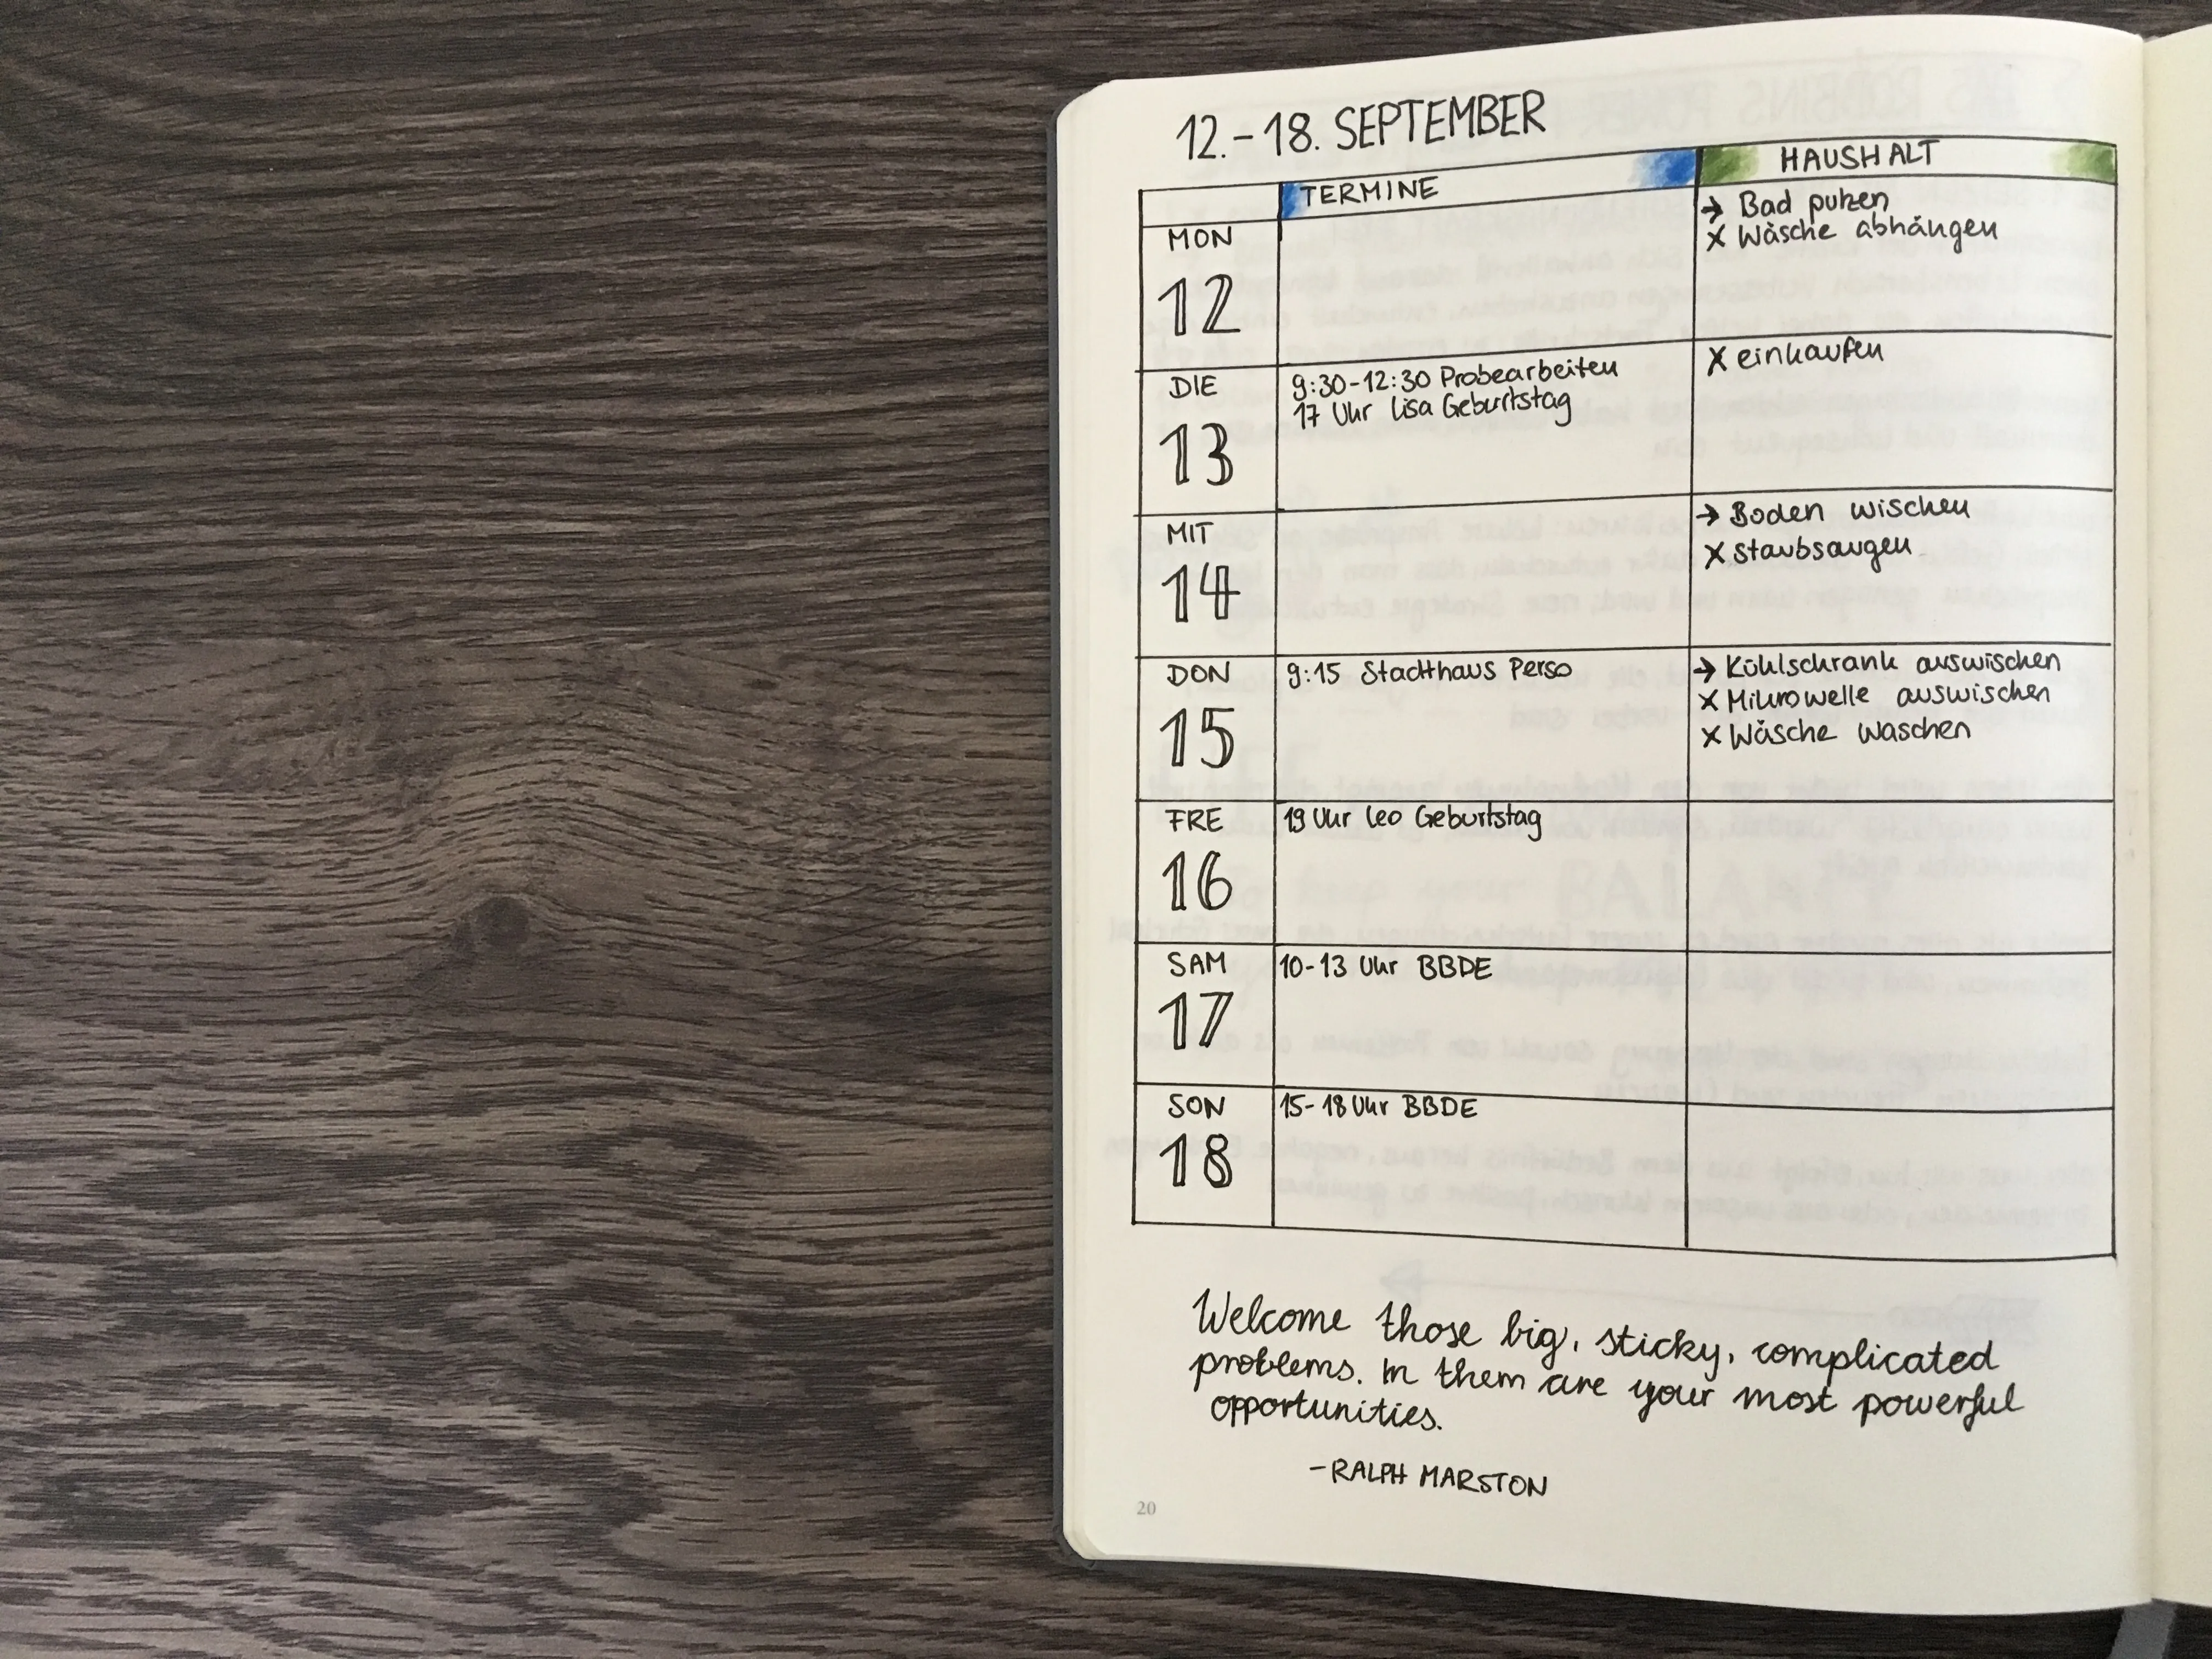 12.-18. SEPTEMBER
TERMINE
HAUSHALT
MON
12
→ Bad putzen
x Wäsche abhängen
DIE
13
9:30-12:30 Probearbeiten
17 Uhr Lisa Geburtstag
x einkaufen
MIT
14
→ Boden wischen
x Staubsaugen
DON
15
9:15 Stadthaus Perso
→ Kühlschrank auswischen
x Mikrowelle auswischen
x Wäsche waschen
FRE
16
19 Uhr Leo Geburtstag
SAM
17
10-13 Uhr BBDE
SON
18
15-18 Uhr BBDE
Welcome those big, sticky, complicated
problems. In them are your most powerful
opportunities.
-RALPH MARSTON
20